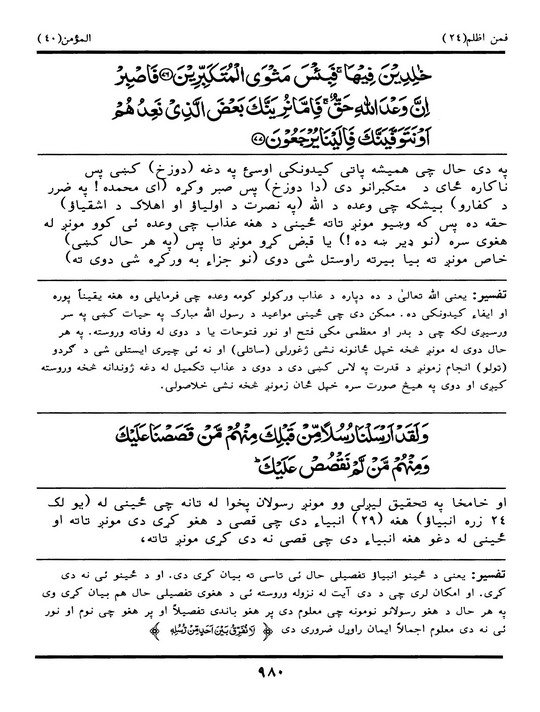 فمن اظلم(٢٤) المؤمن(٤٠)
خٰلِدِیْنَ فِیْهَا ۚ فَبِئْسَ مَثْوَی الْمُتَكَبِّرِیْنَ ﴿٧٦﴾ فَاصْبِرْ
اِنَّ وَعْدَ اللّٰهِ حَقٌّ ۚ فَاِمَّا نُرِیَنَّكَ بَعْضَ الَّذِیْ نَعِدُهُمْ
اَوْ نَتَوَفَّیَنَّكَ فَاِلَیْنَا یُرْجَعُوْنَ ﴿٧٧﴾
په دی حال چی همیشه پاتی کیدونکی اوسئ په دغه (دوزخ) کښی پس
ناکاره ځای د متکبرانو دی (دا دوزخ) پس صبر وکړه (ای محمده! په ضرر
د کفارو) بیشکه چی وعده د الله (په نصرت د اولیاؤ او اهلاک د اشقیاؤ)
حقه ده پس که وښیو مونږ تاته ځینی د هغه عذاب چی وعده ئی کوو مونږ له
هغوی سره (نو ډیر ښه ده!) یا قبض کړو مونږ تا پس (په هر حال کښی)
خاص مونږ ته بیا بیرته راوستل شی دوی (نو جزاء به ورکړه شی دوی ته)
تفسیر: یعنی الله تعالیٰ د ده دپاره د عذاب ورکولو کومه وعده چی فرمایلی وه هغه یقیناً پوره
او ایفاء کیدونکی ده. ممکن دی چی ځینی مواعید د رسول الله مبارک په حیات کښی په سر
ورسیږی لکه چی د بدر او معظمی مکی فتح او نور فتوحات یا د دوی له وفاته وروسته. په هر
حال دوی له مونږ څخه خپل ځانونه نشی ژغورلی (ساتلی) او نه ئی چیری ایستلی شی د ګردو
(ټولو) انجام زمونږ د قدرت په لاس کښی دی د دوی د عذاب تکمیل له دغه ژوندانه څخه وروسته
کیږی او دوی په هیڅ صورت سره خپل ځان زمونږ څخه نشی خلاصولی.
وَلَقَدْ اَرْسَلْنَا رُسُلًا مِّنْ قَبْلِكَ مِنْهُمْ مَّنْ قَصَصْنَا عَلَیْكَ
وَمِنْهُمْ مَّنْ لَّمْ نَقْصُصْ عَلَیْكَ ؕ
او خامخا په تحقیق لیږلی وو مونږ رسولان پخوا له تانه چی ځینی له (یو لک
٢٤ زره انبیاؤ) هغه (٢٩) انبیاء دی چی قصی د هغو کړی دی مونږ تاته او
ځینی له دغو هغه انبیاء دی چی قصی نه دی کړی مونږ تاته،
تفسیر: یعنی د ځینو انبیاؤ تفصیلی حال ئی تاسی ته بیان کړی دی. او د ځینو ئی نه دی
کړی. او امکان لری چی د دی آیت له نزوله وروسته ئی د هغوی تفصیلی حال هم بیان کړی وی
په هر حال د هغو رسولانو نومونه چی معلوم دی پر هغو باندی تفصیلاً او پر هغو چی نوم او نور
ئی نه دی معلوم اجمالاً ایمان راوړل ضروری دی ﴿ لَا نُفَرِّقُ بَیْنَ اَحَدٍ مِّنْ رُّسُلِهٖ ﴾
٩٨٠